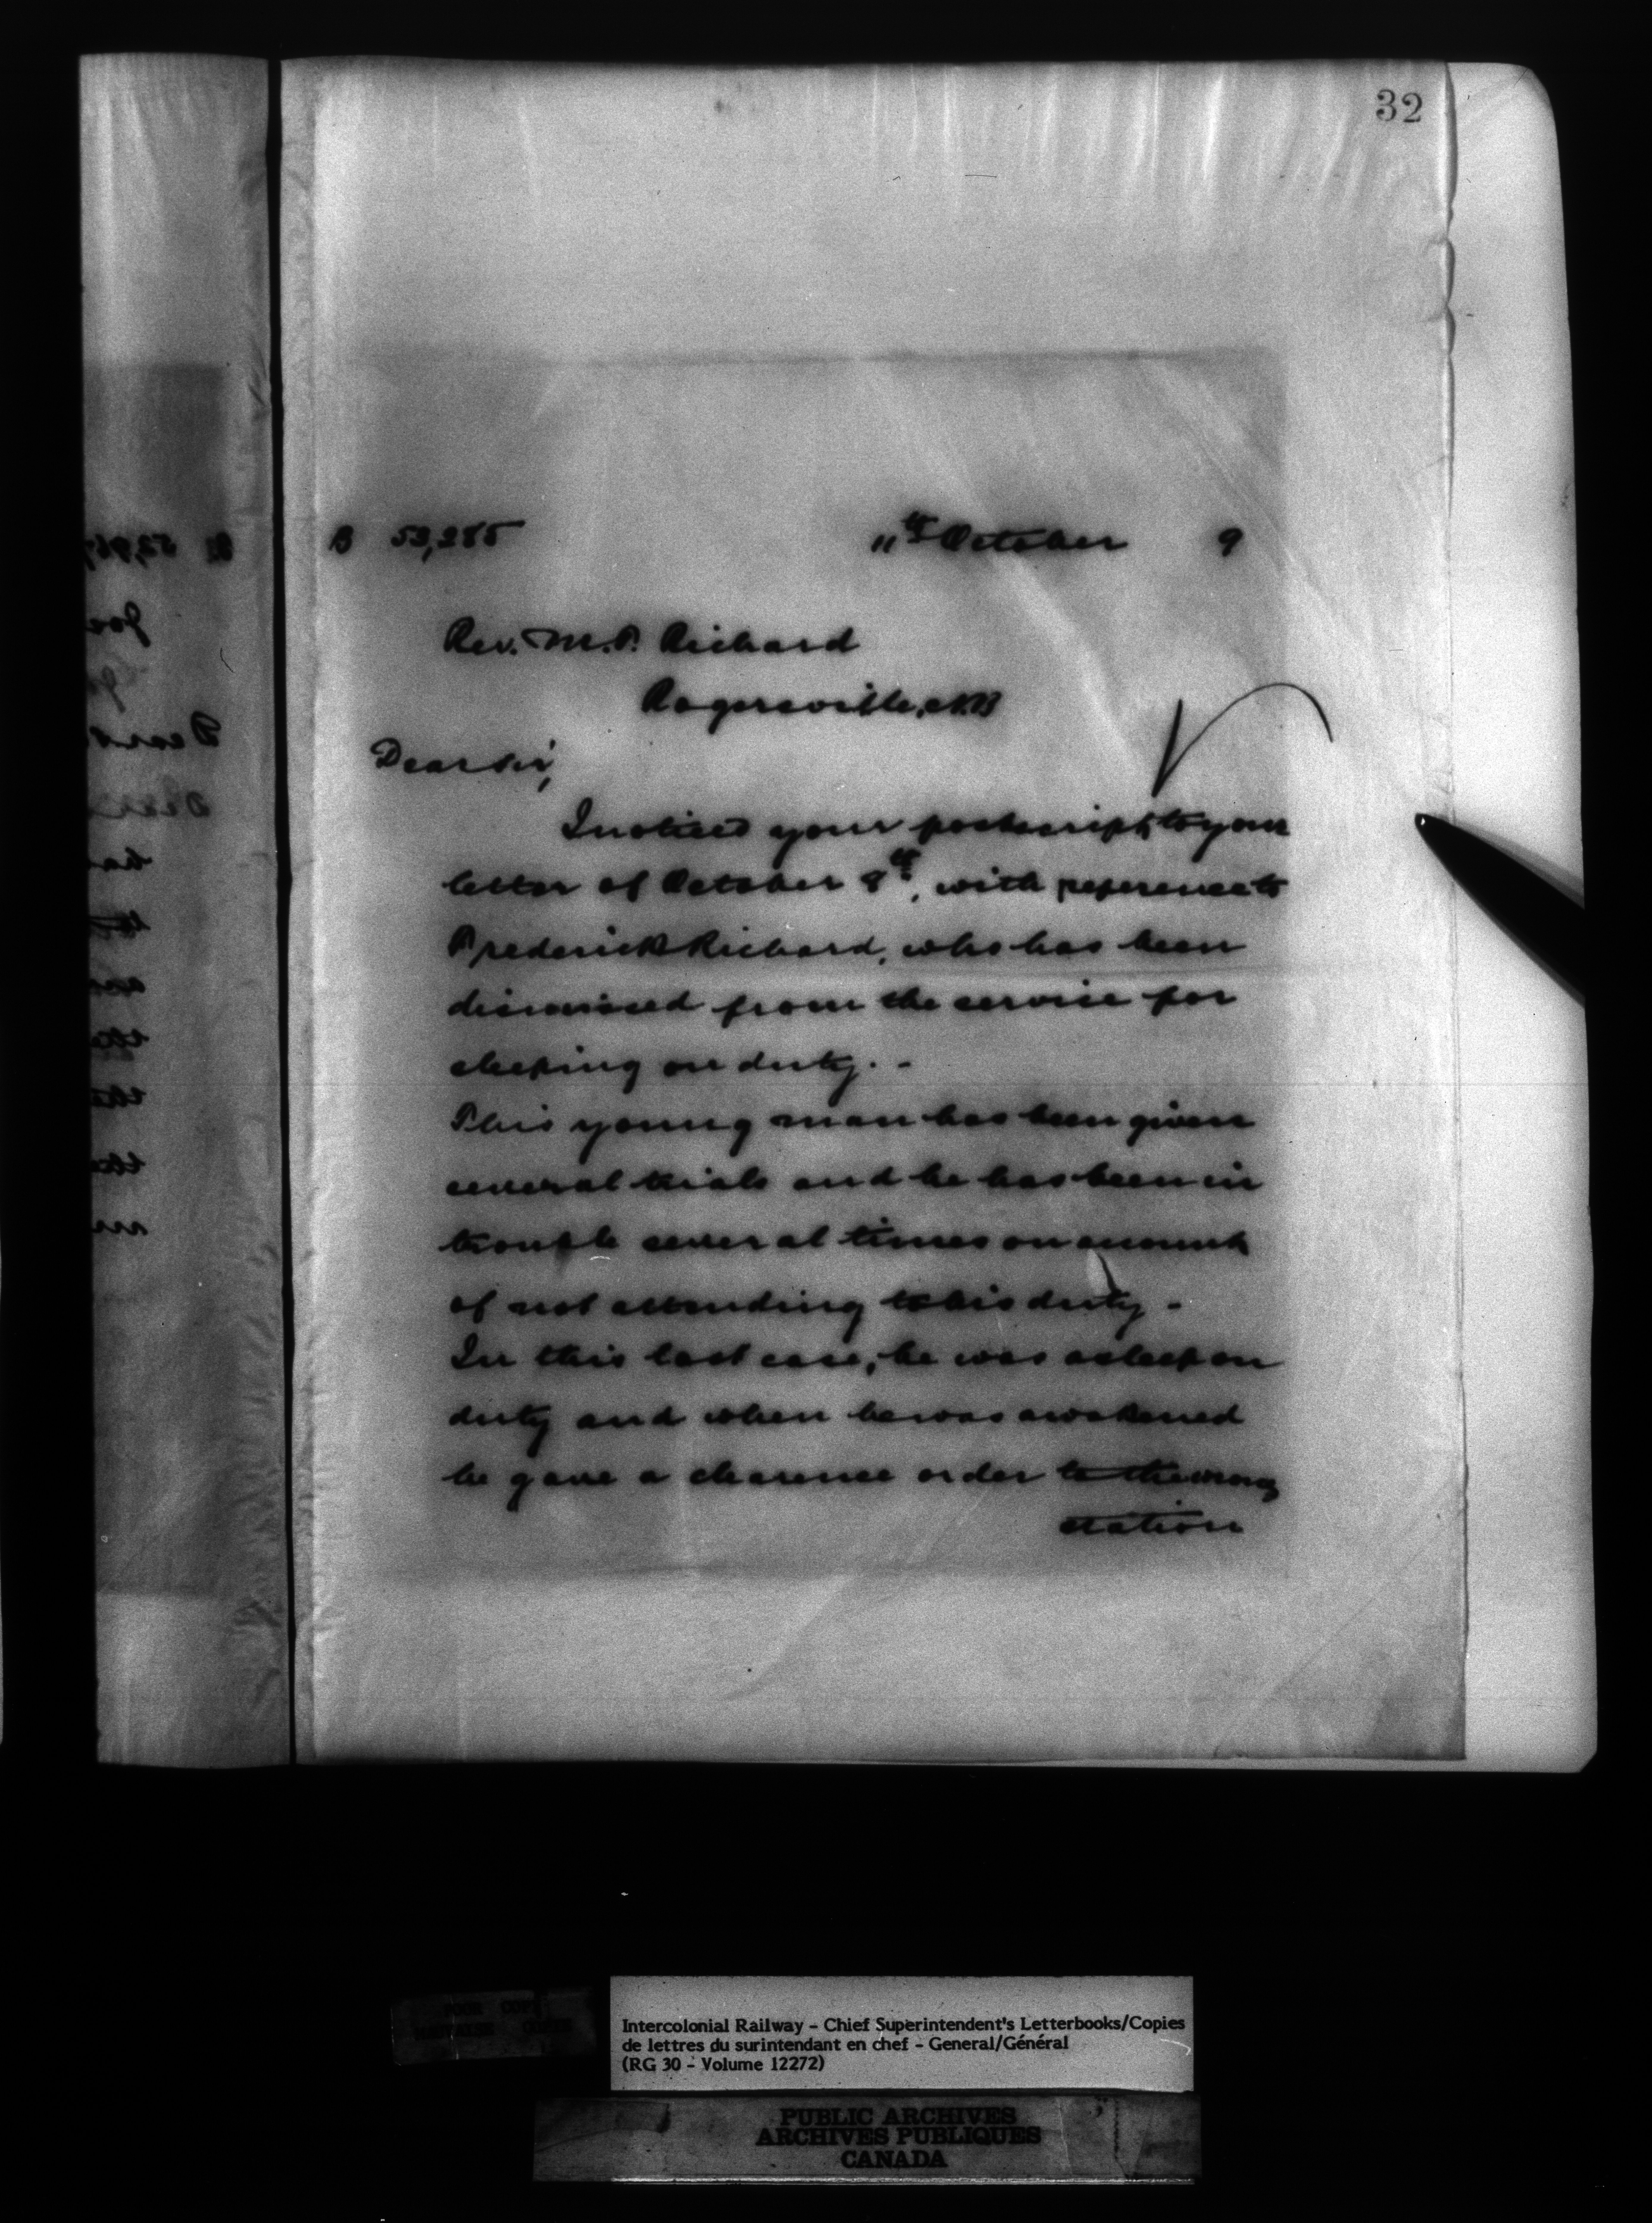 32
B 53,285 11th October 9
Rev. M.F. Richard
Rogersville, N.B
Dear Sir,
I noticed your postscript to your
letter of October 8th, with reference to
Frederick Richard, who has been
dismissed from the service for
sleeping on duty. -
This young man has been given
several trials and he has been in
trouble several times on account
of not attending to his duty -
In this last case, he was asleep on
duty and when he was awakened
he gave a clearence order to the wrong
station
Intercolonial Railway - Chief Superintendent's Letterbooks/Copies
de lettres du surintendant en chef - General/Général
(RG 30 - Volume 12272)
PUBLIC ARCHIVES
ARCHIVES PUBLIQUES
CANADA